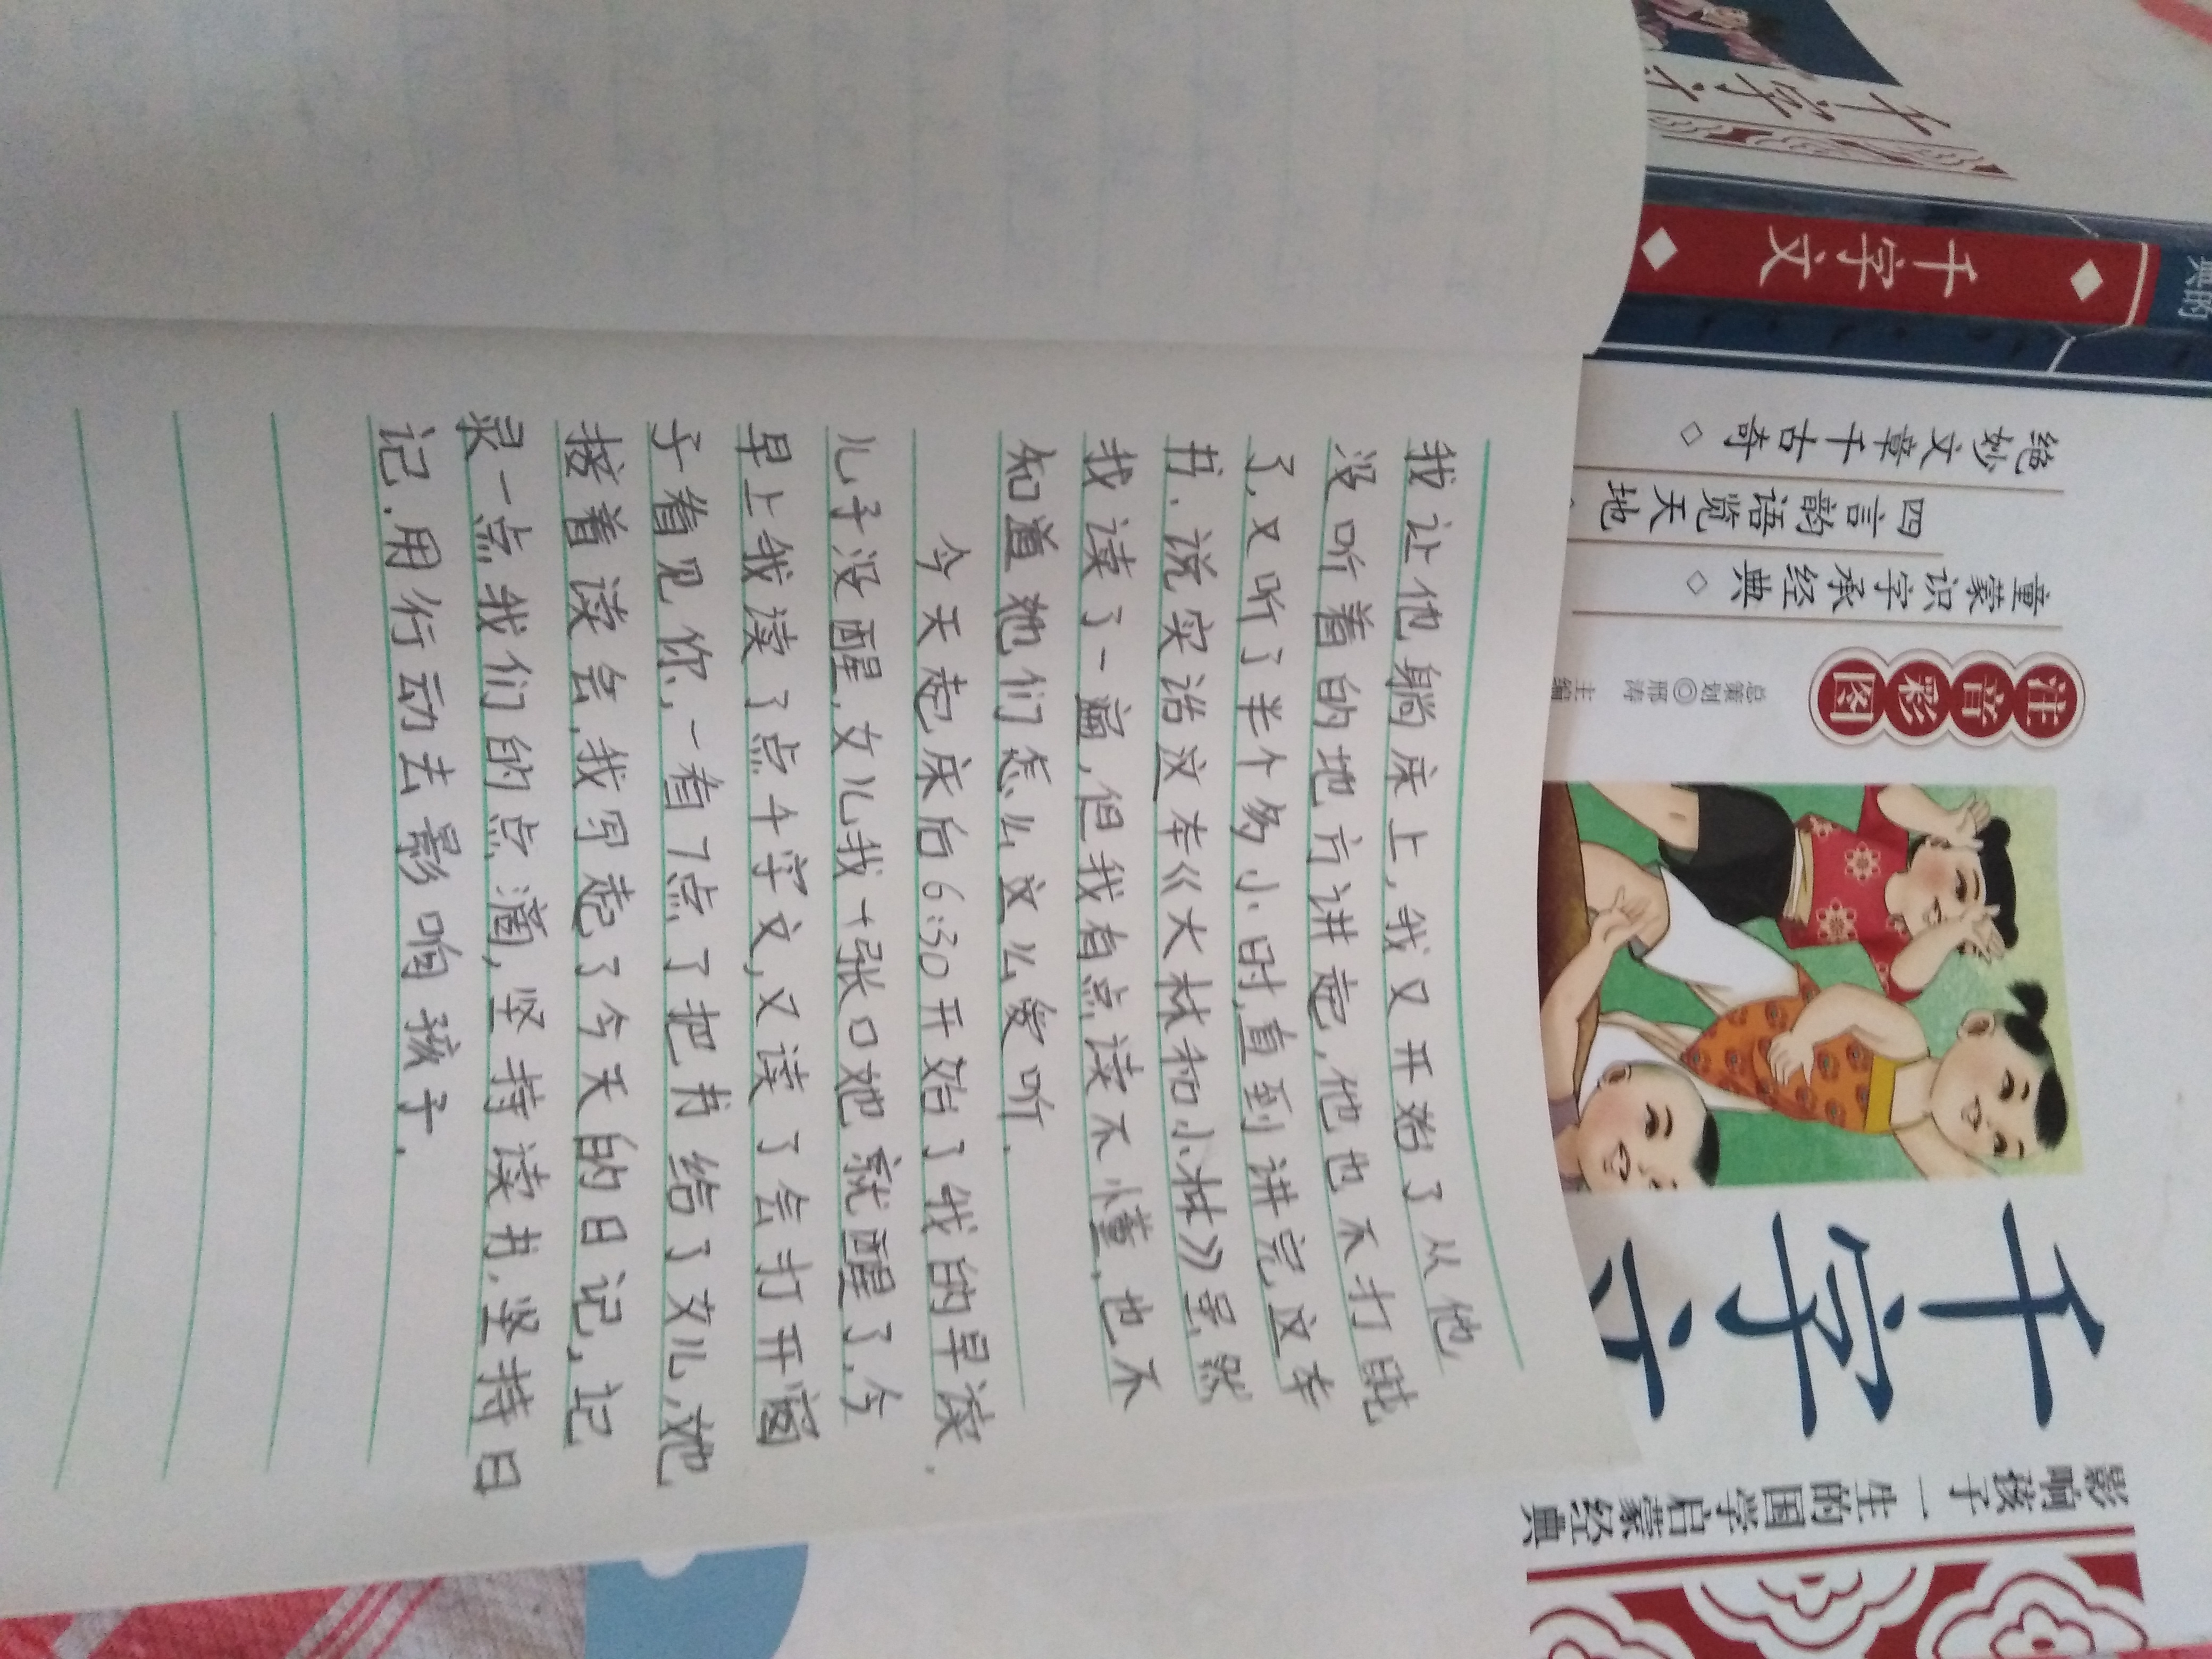 我让他躺床上,我又开始了从他
没听着的地方讲起,他也不打盹
了,又听了半个多小时,直到讲完这本
书,说实话这本《大林和小林》虽然
我读了一遍,但我有点读不懂,也不
知道她们怎么这么爱听.
今天起床后6:30开始了我的早读.
儿子没醒,女儿我一张口她就醒了,今
早上我读了点千字文,又读了会打开窗
子看见你,一看7点了把书给了女儿,她
接着读会,我写起了今天的日记,记
录一点我们的点滴,坚持读书,坚持日
记.用行动去影响孩子.
千字文
千字文
典的
绝妙文章千古奇
四言韵语览天地
童蒙识字承经典
注音彩图
总策划◎邢涛
主编
千字文
影响孩子一生的国学启蒙经典